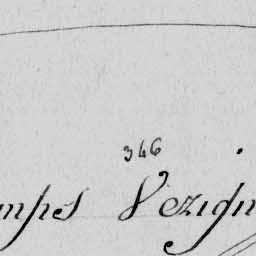 346
mps Vezign